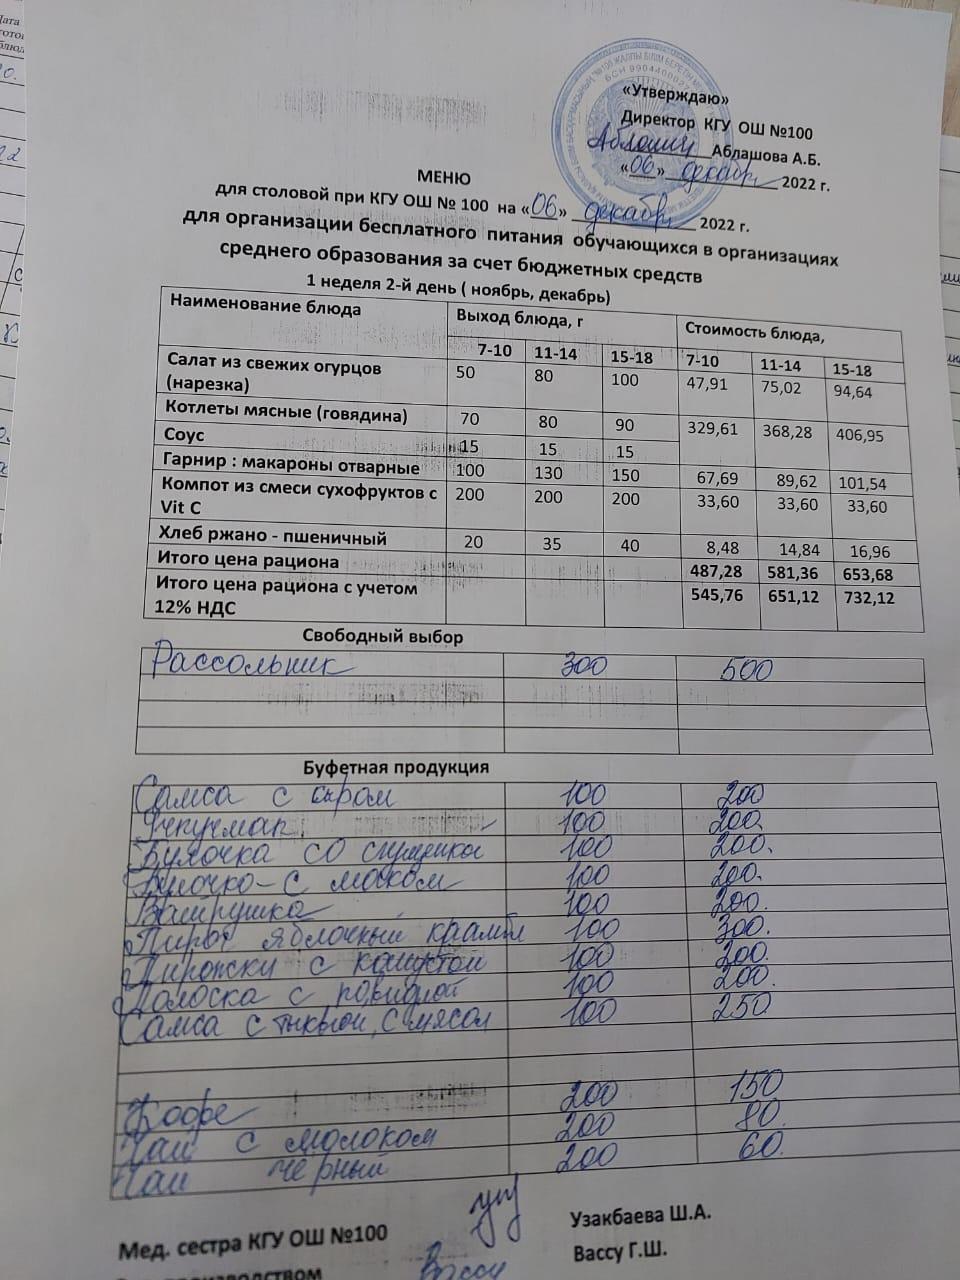 Дата
«Утверждаю»
Директор КГУ ОШ №100
Аблашова А.Б.
«06» декабр 2022 г.
МЕНЮ
для столовой при КГУ ОШ № 100 на «06» декабр 2022 г.
для организации бесплатного питания обучающихся в организациях
среднего образования за счет бюджетных средств
1 неделя 2-й день ( ноябрь, декабрь)
Наименование блюда Выход блюда, г Стоимость блюда,
7-10 11-14 15-18 7-10 11-14 15-18
Салат из свежих огурцов 50 80 100 47,91 75,02 94,64
(нарезка)
Котлеты мясные (говядина) 70 80 90 329,61 368,28 406,95
Соус 15 15 15
Гарнир : макароны отварные 100 130 150 67,69 89,62 101,54
Компот из смеси сухофруктов с 200 200 200 33,60 33,60 33,60
Vit C
Хлеб ржано - пшеничный 20 35 40 8,48 14,84 16,96
Итого цена рациона 487,28 581,36 653,68
Итого цена рациона с учетом 545,76 651,12 732,12
12% НДС
Свободный выбор
Рассольник 300 500
Буфетная продукция
Самса с сыром 100 200
Учпучмак 100 200
Булочка со 100 200.
Булочко - с маком 100 200.
Ватрушка 100 200.
Пирог яблочный крамбл 100 300.
Пирожки с капустой 100 200.
Полоска с повидлой 100 200.
Самса с тыквой, с мясом 100 250
Кофе 200 150
Чай с молоком 200 80.
Чай чёрный 200 60.
Мед. сестра КГУ ОШ №100 Узакбаева Ш.А.
Вассу Вассу Г.Ш.